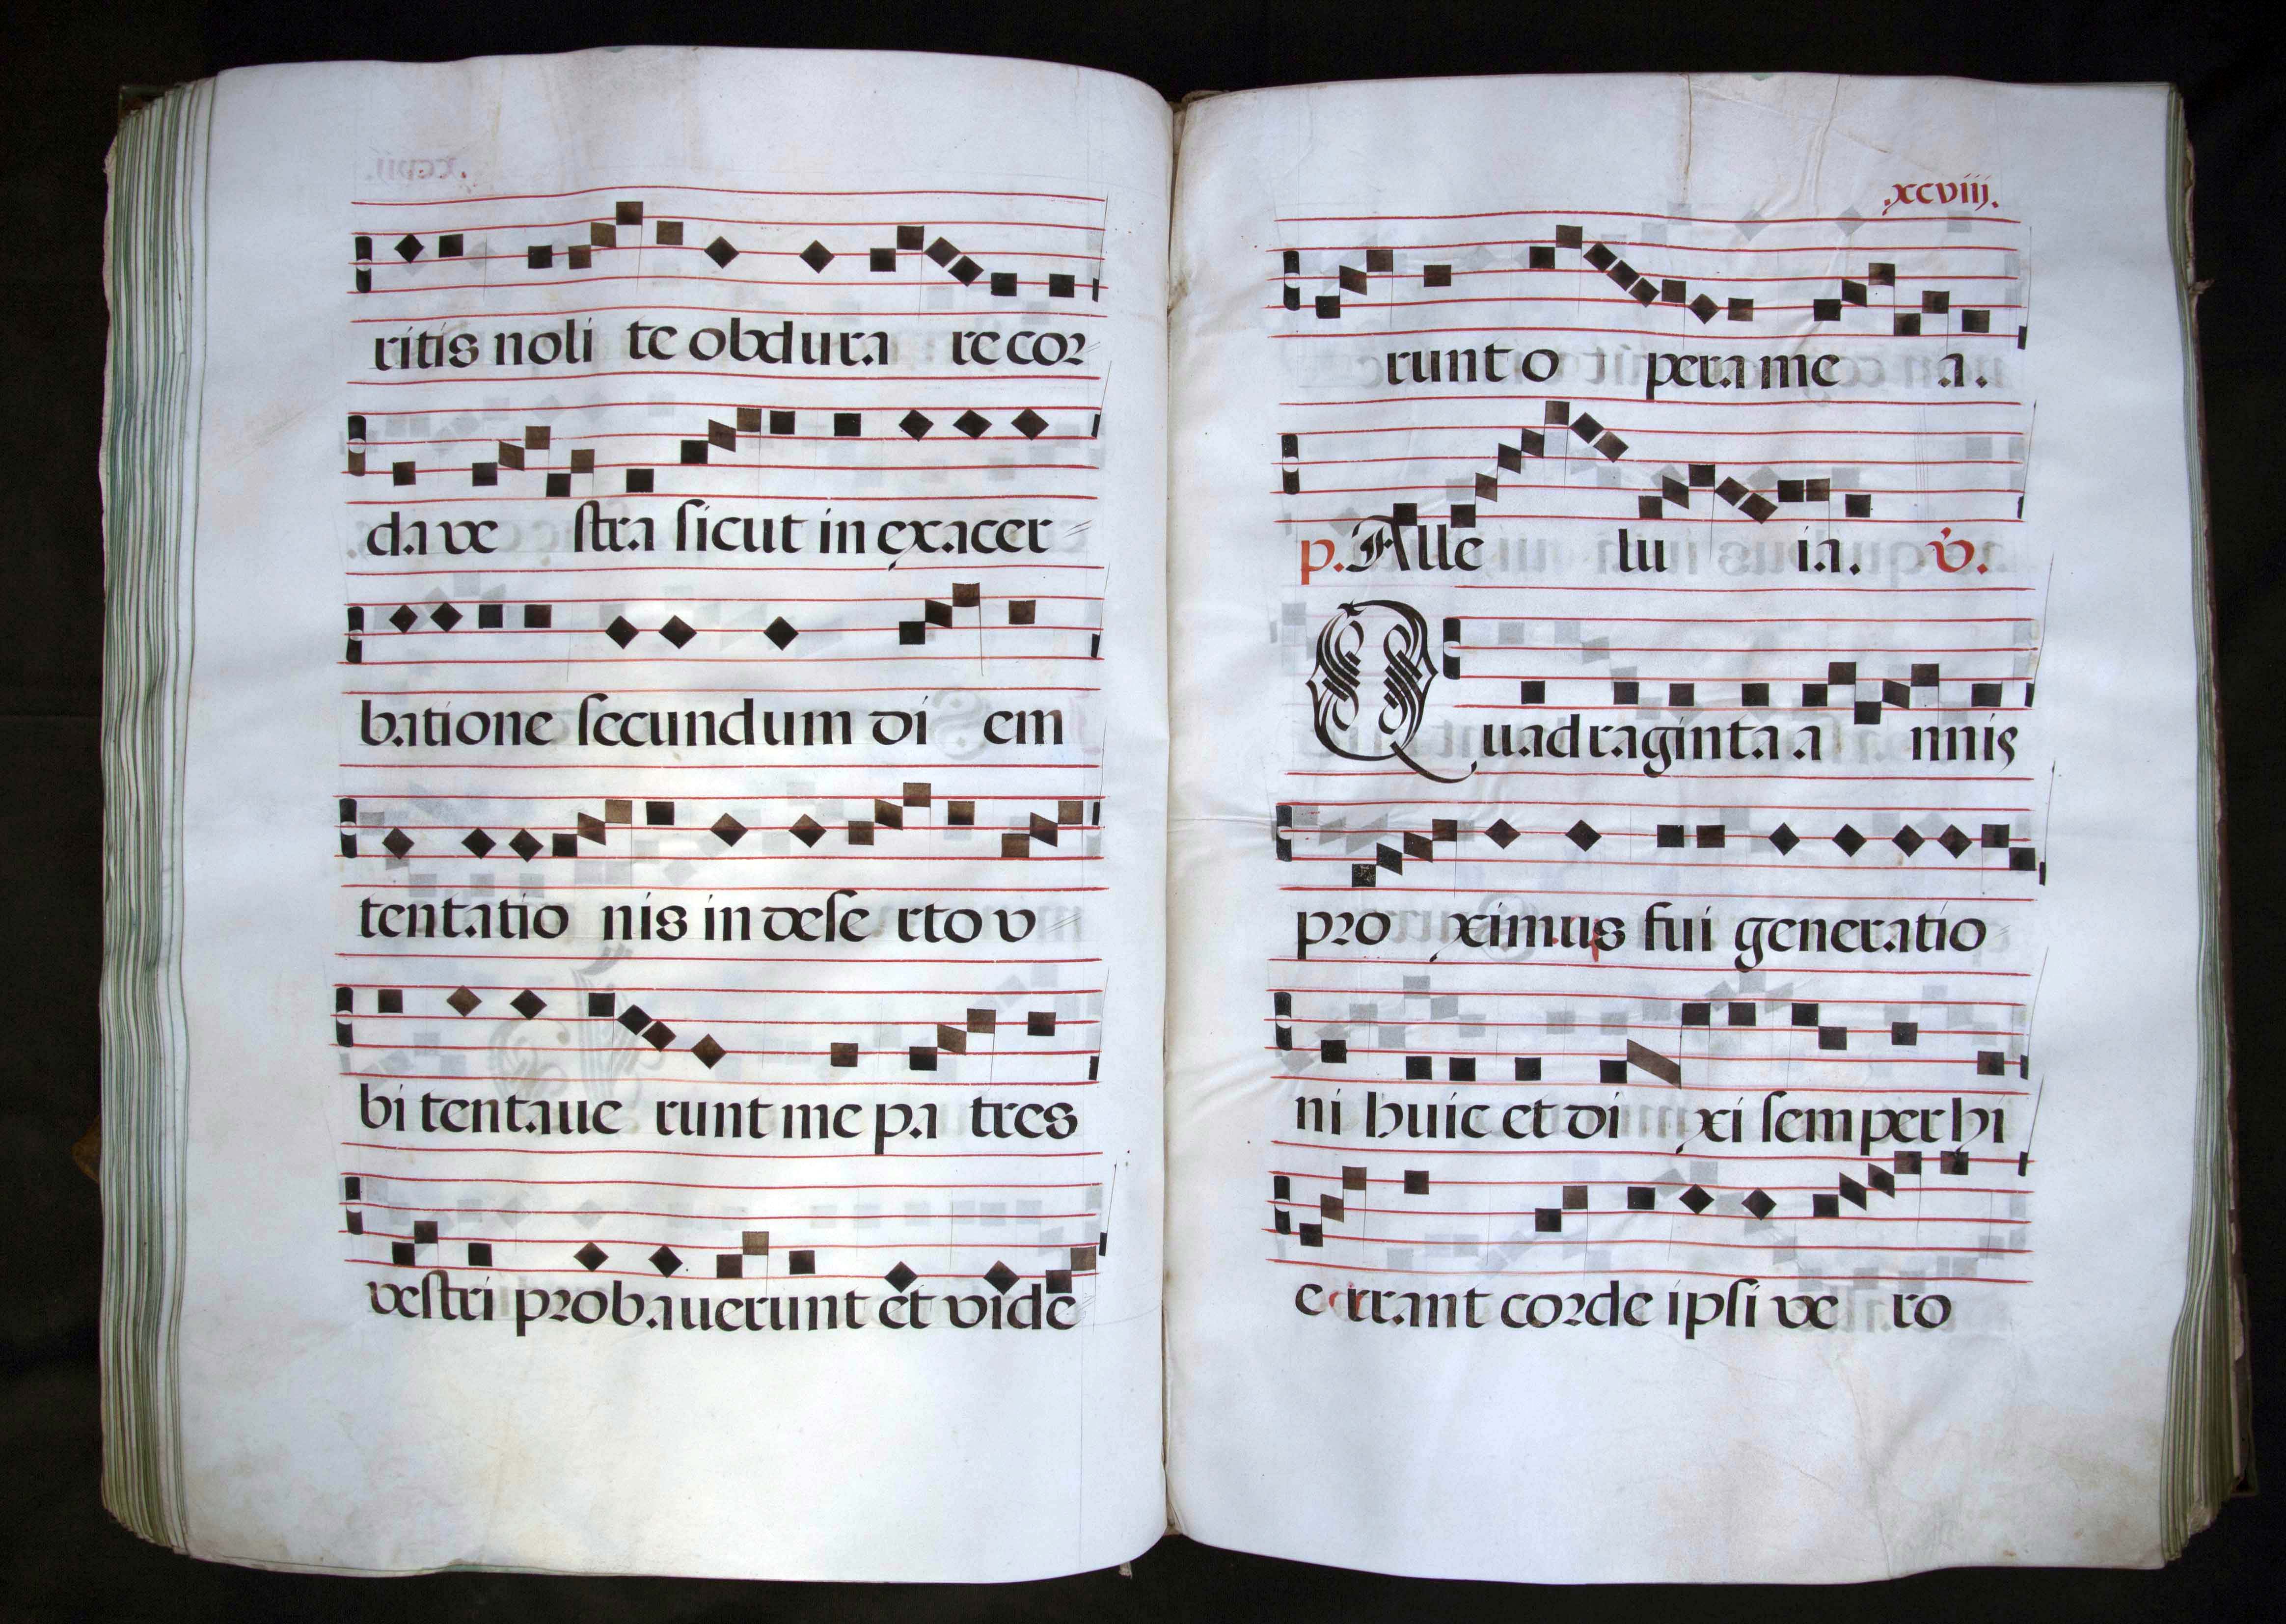 ritis noli te obdura re cor
da ve stra sicut in exacer
batione secundum di em
tentatio nis in dese rto v
bi tentaue runt me pa tres
vestri probauerunt et vide
.xcviij.
runt o pera me a.
p. Alle lu ia. v.
Quadraginta a nnis
pro ximus fui generatio
ni huic et di xi semper hi
errant corde ipsi ve ro